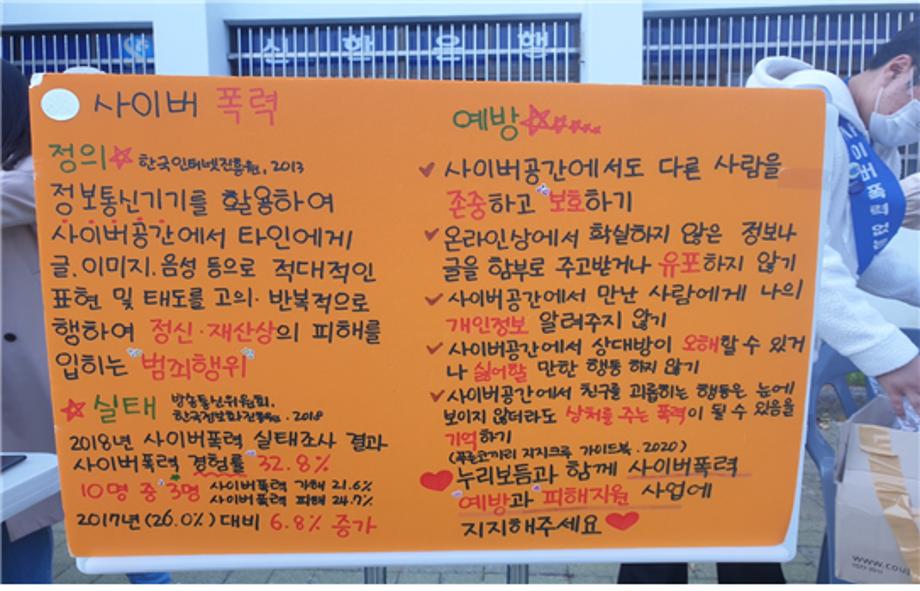 신한은행
사이버 폭력
정의 한국인터넷진흥원, 2013
정보통신기기를 활용하여
사이버공간에서 타인에게
글, 이미지, 음성 등으로 적대적인
표현 및 태도를 고의·반복적으로
행하여 정신·재산상의 피해를
입히는 "범죄행위"
실태 방송통신위원회,
한국정보화진흥원, 2018
2018년 사이버폭력 실태조사 결과
사이버폭력 경험률 32.8%
10명 중 3명 사이버폭력 가해 21.6%
사이버폭력 피해 24.7%
2017년(26.0%)대비 6.8% 증가
예방
사이버공간에서도 다른 사람을
존중하고 보호하기
온라인상에서 확실하지 않은 정보나
글을 함부로 주고받거나 유포하지 않기
사이버공간에서 만난 사람에게 나의
개인정보 알려주지 않기
사이버공간에서 상대방이 오해할 수 있거
나 싫어할 만한 행동 하지 않기
사이버공간에서 친구를 괴롭히는 행동은 눈에
보이지 않더라도 상처를 주는 폭력이 될 수 있음을
기억하기
(푸른코끼리 지지크루 가이드북, 2020)
누리보듬과 함께 사이버폭력
예방과 피해지원 사업에
지지해주세요
사이버폭력
www.cou